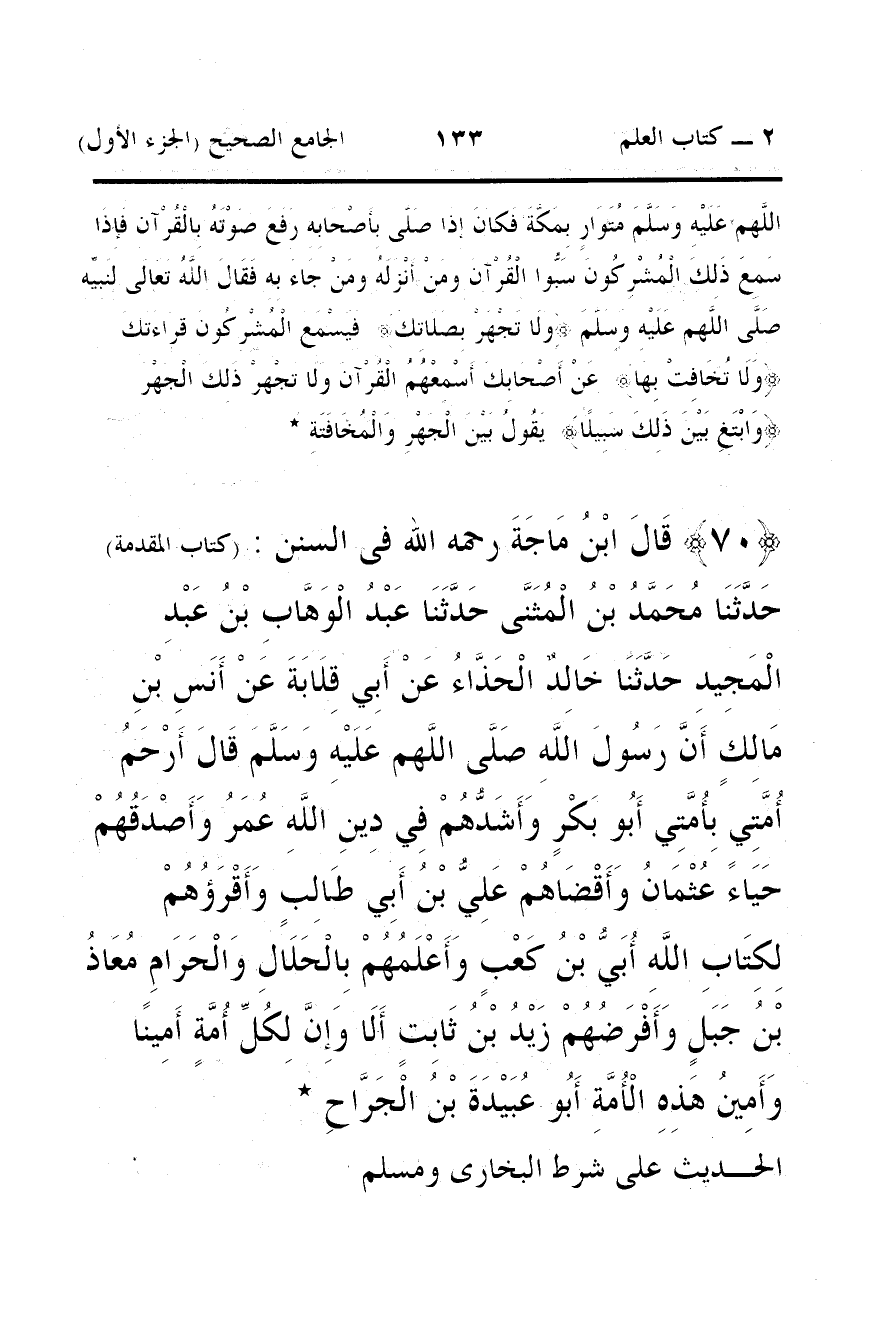 ٢ ــ كتاب العلم ١٣٣ الجامع الصحيح (الجزء الأول)
اللَّهم عَلَيْهِ وَسَلَّمَ مُتَوَارٍ بِمَكَّةَ فَكَانَ إِذَا صَلَّى بِأَصْحَابِهِ رَفَعَ صَوْتَهُ بِالْقُرْآنِ فَإِذَا
سَمِعَ ذَلِكَ الْمُشْرِكُونَ سَبُّوا الْقُرْآنَ وَمَنْ أَنْزَلَهُ وَمَنْ جَاءَ بِهِ فَقَالَ اللَّهُ تَعَالَى لِنَبِيِّهِ
صَلَّى اللهم عَلَيْهِ وَسَلَّمَ ﴿ولا تَجْهَرْ بِصَلاتِكَ﴾ فَيَسْمَعَ الْمُشْرِكُونَ قِرَاءَتَكَ
﴿وَلَا تُخَافِتْ بِهَا﴾ عَنْ أَصْحَابِكَ أَسْمِعْهُمُ الْقُرْآنَ وَلا تَجْهَرْ ذَلِكَ الْجَهْرَ
﴿وَابْتَغِ بَيْنَ ذَلِكَ سَبِيلًا﴾ يَقُولُ بَيْنَ الْجَهْرِ وَالْمُخَافَتَةِ *
﴿٧٠﴾ قَالَ ابْنُ مَاجَةَ رحمه الله فى السنن : (كتاب المقدمة)
حَدَّثَنَا مُحَمَّدُ بْنُ الْمُثَنَّى حَدَّثَنَا عَبْدُ الْوَهَّابِ بْنُ عَبْدِ
الْمَجِيدِ حَدَّثَنَا خَالِدٌ الْحَذَّاءُ عَنْ أَبِي قِلَابَةَ عَنْ أَنَسِ بْنِ
مَالِكٍ أَنَّ رَسُولَ اللهِ صَلَّى اللهم عَلَيْهِ وَسَلَّمَ قَالَ أَرْحَمُ
أُمَّتِي بِأُمَّتِي أَبُو بَكْرٍ وَأَشَدُّهُمْ فِي دِينِ اللَّهِ عُمَرُ وَأَصْدَقُهُمْ
حَيَاءً عُثْمَانُ وَأَقْضَاهُمْ عَلِيُّ بْنُ أَبِي طَالِبٍ وَأَقْرَؤُهُمْ
لِكِتَابِ اللَّهِ أُبَيُّ بْنُ كَعْبٍ وَأَعْلَمُهُمْ بِالْحَلَالِ وَالْحَرَامِ مُعَاذُ
بْنُ جَبَلٍ وَأَفْرَضُهُمْ زَيْدُ بْنُ ثَابِتٍ أَلَا وَإِنَّ لِكُلِّ أُمَّةٍ أَمِينًا
وَأَمِينُ هَذِهِ الْأُمَّةِ أَبُو عُبَيْدَةَ بْنُ الْجَرَّاحِ *
الحـديث على شرط البخارى ومسلم